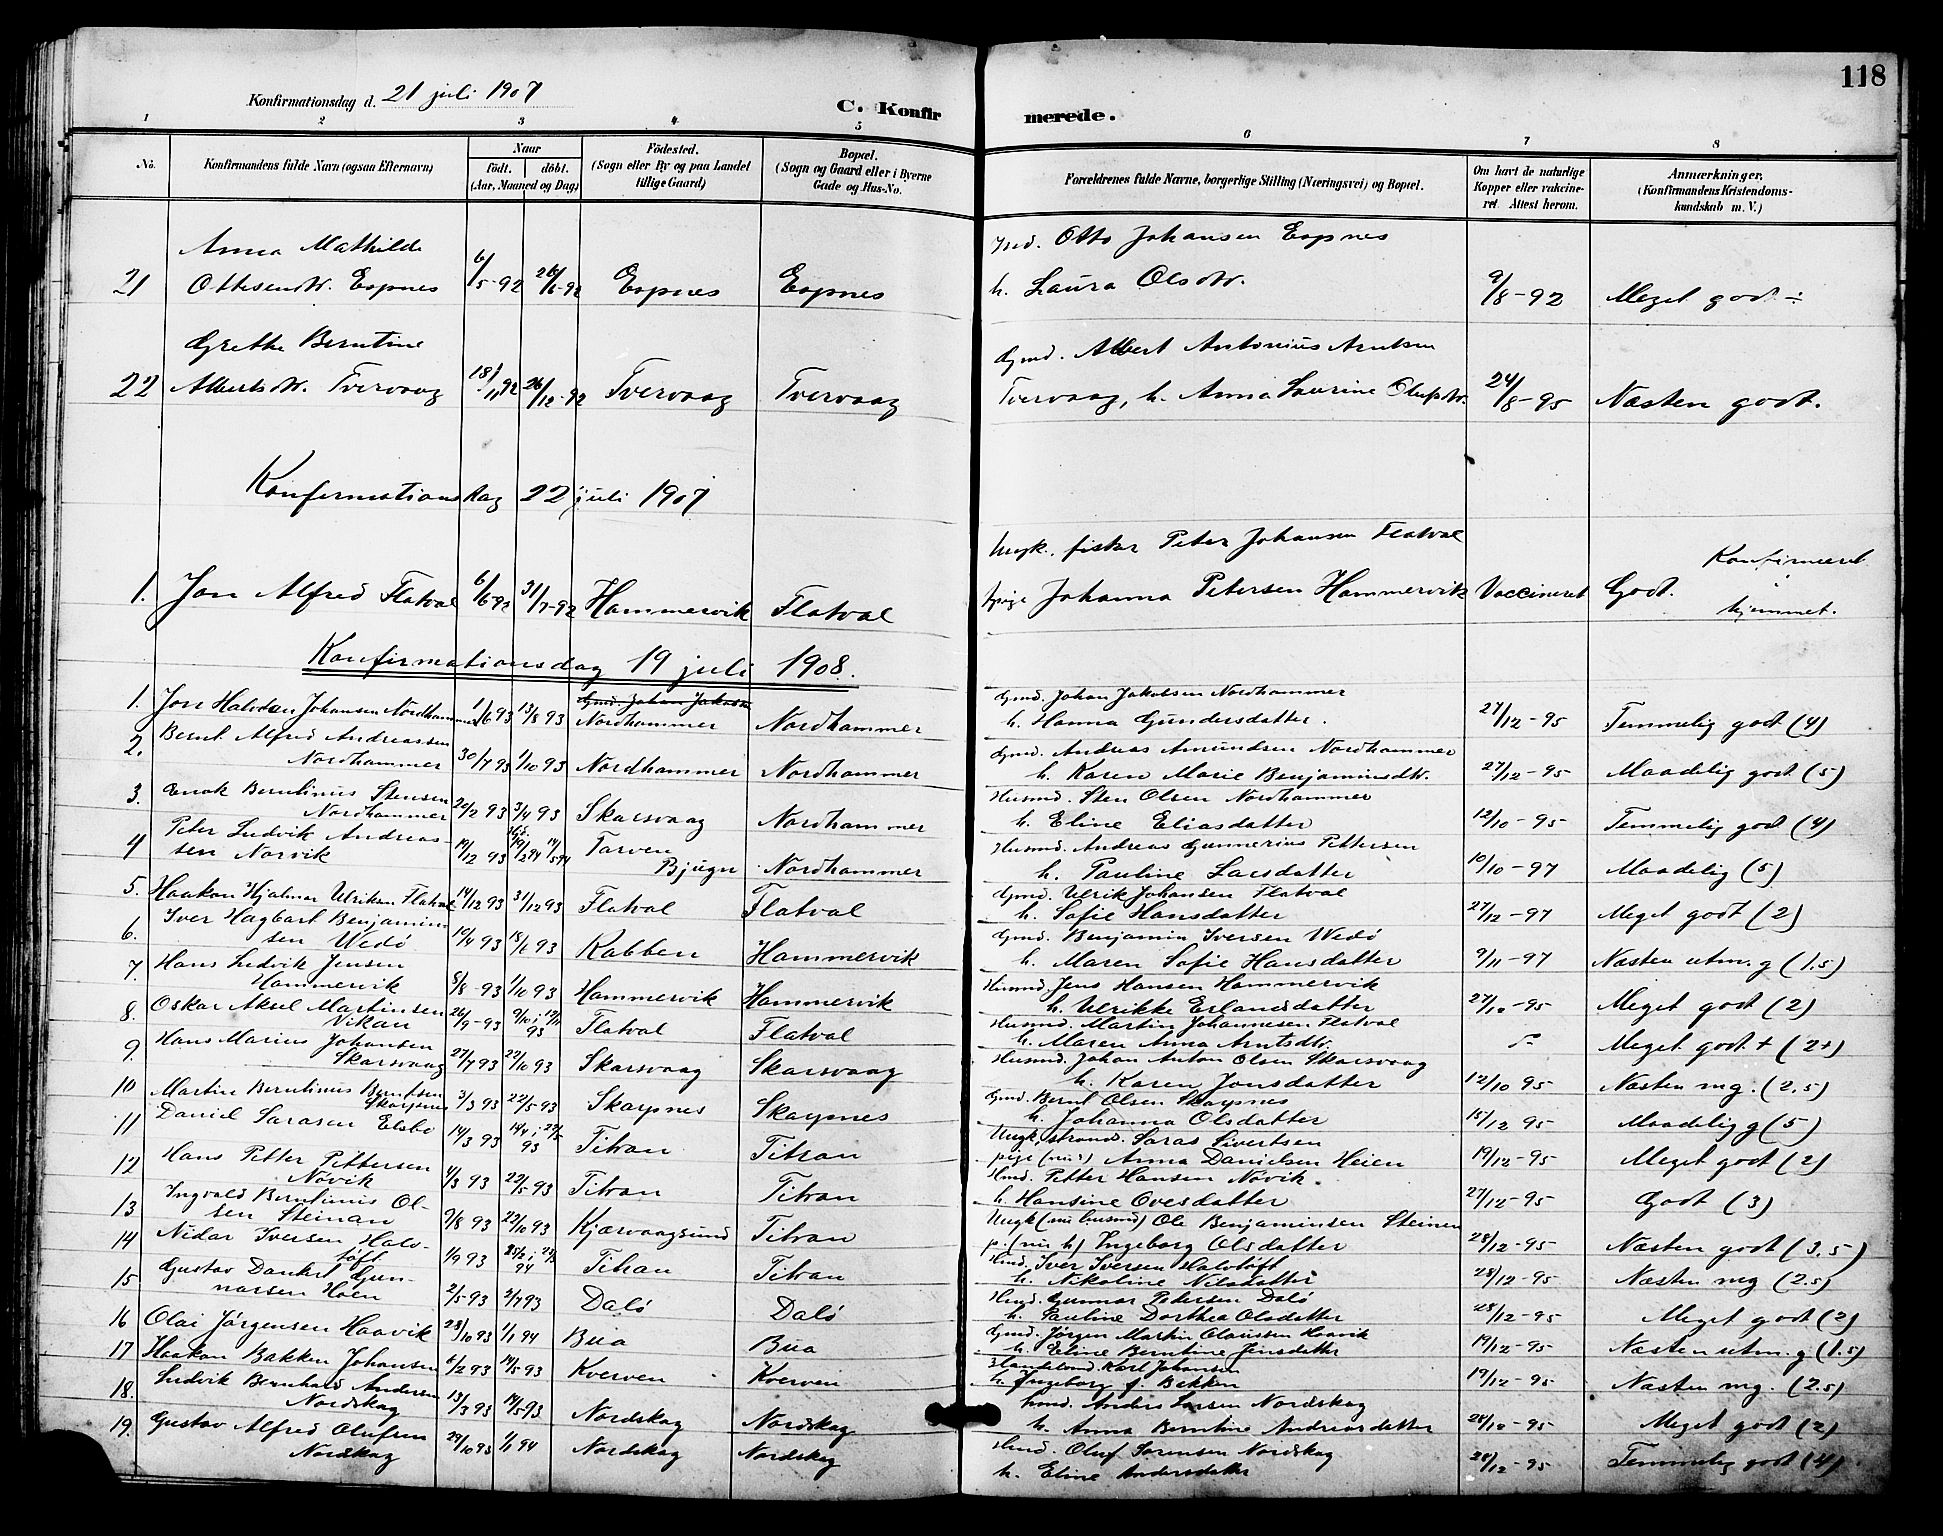 118
Konfirmationsdag d. 21 juli 1907
C. Konfirmerede.
1 2 3 4 5 6 7 8
No. Konfirmandens fulde Navn (ogsaa Efternavn) Naar födt. döbt. (Aar, Maaned og Dag) Födested. (Sogn eller By og paa Landet tillige Gaard) Bopæl. (Sogn og Gaard eller i Byerne Gade og Hus-No. Forældrenes fulde Navne, borgerlige Stilling (Næringsvei) og Bopæl. Om havt de naturlige Kopper eller vakcineret. Attest herom. Anmærkninger. (Konfirmandens Kristendomskundskab m. V.)
Anna Mathilde Otto Johansen Espnes
21 Ottesendtr. Espnes 6/5-92 26/6-92 Espnes Espnes h. Laura Olsdtr. 9/8-92 Meget godt ÷
Grethe Berntine Gmd. Albert Antonius Arntsen
22 Albertsdtr. Tvervaag 18/11 92 26/12-92 Tvervaag Tvervaag Tvervaag, h. Anna Laurine Olufsdtr. 24/8-95 Næsten godt.
Konfirmationsdag 22 juli 1907
Ungk. fisker Peter Johansen Flatval Konfirmeret i
1. Jon Alfred Flatval 6/6-92 31/7-92 Hammervik Flatval pige Johanna Petersen Hammervik Vaccineret Godt. hjemmet.
Konfirmationsdag 19 juli 1908.
Gmd. Johan Jakobsen Gmd. Johan Jakobsen Nordhammer
1. Jon Halvdan Johansen Nordhammer 1/6 93 13/8 93 Nordhammer Nordhammer h. Hanna Gundersdatter. 27/12-95 Temmelig godt (4)
2. Bernt Alfred Andreassen Gmd. Andreas Amundsen Nordhammer
Nordhammer 30/7 93 1/10 93 Nordhammer Nordhammer h. Karen Marie Benjaminsdtr. 27/12-95 Maadelig godt (5)
3. Enok Berntinus Stensen Husmd. Sten Olsen Nordhammer
Nordhammer 20/2 93 3/4 93 Skarsvaag Nordhammer h. Eline Eliasdatter 12/10-95 Temmelig godt (4)
4 Peter Ludvik Andreas- Husmd. Andreas Gunnerius Pettersen
sen Norvik 19/12 93 Tarven Bjugn Nordhammer h. Pauline Larsdatter 10/10-97 Maadelig (5)
5. Haakon Hjalmar Ulriksen Flatval 14/12 93 31/12 93 Flatval Flatval Gmd. Ulrik Johansen Flatval
h. Sofie Hansdatter 27/12-97 Meget godt (2)
6. Iver Hagbart Benjamin- Gmd. Benjamin Iversen Wedö
sen Wedö 19/4 93 18/6 93 Rabben Hammervik h. Maren Sofie Hansdatter 9/11-97 Næsten utm. g (1.5)
7. Hans Ludvik Jensen Husmd. Jens Hansen Hammervik
Hammervik 8/8-93 1/10 93 Hammervik Hammervik h. Ulrikke Erlandsdatter 27/10-95 Meget godt (2)
8. Oskar Aksel Martinsen Husmd. Martin Johannesen Flatval
Vikan 26/9-93 Flatval Flatval h. Maren Anna Arntsdtr. Meget godt + (2+)
9. Hans Marius Johansen Husmd. Johan Anton Olsen Skarsvaag
Skarsvaag 27/7 93 22/10 93 Skarsvaag Skarsvaag h. Karen Jonsdatter 12/10 95 Næsten mg. (2.5)
10 Martin Berntinus Berntsen Gmd. Bernt Olsen Skarpnes
Skarpnes 3/3 93 22/5-93 Skarpnes Skarpnes h. Johanna Olsdatter 15/12 95 Maadelig g (5)
11 Daniel Sarasen Elsbo 14/3 93 Titran Titran Ungk, strand. Saras Sivertsen
pige (nu +) Anna Danielsen Heien 19/12-95 Meget godt (2)
12 Hans Petter Pettersen Hmd. Petter Hansen Növik.
Növik 4/3 93 22/5 93 Titran Titran h. Hansine Ovesdatter 27/12-95 Godt (3)
13 Ingvald Berntinus Ol- Ungk (nu husmd) Ole Benjaminsen Steinen
sen Steinan 9/8 93 22/10 93 Kjærvaagsund Titran p. (nu h) Ingeborg Olsdatter 28/12-95 Næsten godt (3.5)
14 Nidar Iversen Halv- Hmd. Iver Iversen Halvtöft
töft 1/9 93 Titran Titran h. Nikoline Nilsdatter 28/12-95 Næsten mg (2.5)
15 Gustav Dankel Gun- Hmd. Gunnar Petersen Dalö
narsen Hoen 2/5-93 2/7 93 Dalö Dalö h. Pauline Dorthea Olsdatter 28/12-95 Meget godt (2)
16 Olai Jørgensen Haavik 28/10 93 1/1 94 Bua Bua Gmd. Jørgen Martin Olaussen Haavik
h. Eline Berntine Jensdatter 19/12-95 Næsten utm. g (1.5)
17 Haakon Bakken Johansen 6/2 93 14/5 93 Kverven Kverven Handelsmd. Karl Johansen
h. Ingeborg f. Bakken 19/12-95 Næsten mg. (2.5)
18. Ludvik Bernhard Andersen Husmd. Anders Larsen Nordskag
Nordskag 13/3 93 14/5 93 Nordskag Nordskag h. Anna Berntine Andreasdatter 28/10-95 Meget godt (2)
19. Gustav Alfred Olufsen Hmd. Oluf Sørensen Nordskag
Nordskag 29/10 93 1/1 94 Nordskag Nordskag h. Eline Andersdatter 28/12-95 Temmelig godt (4)